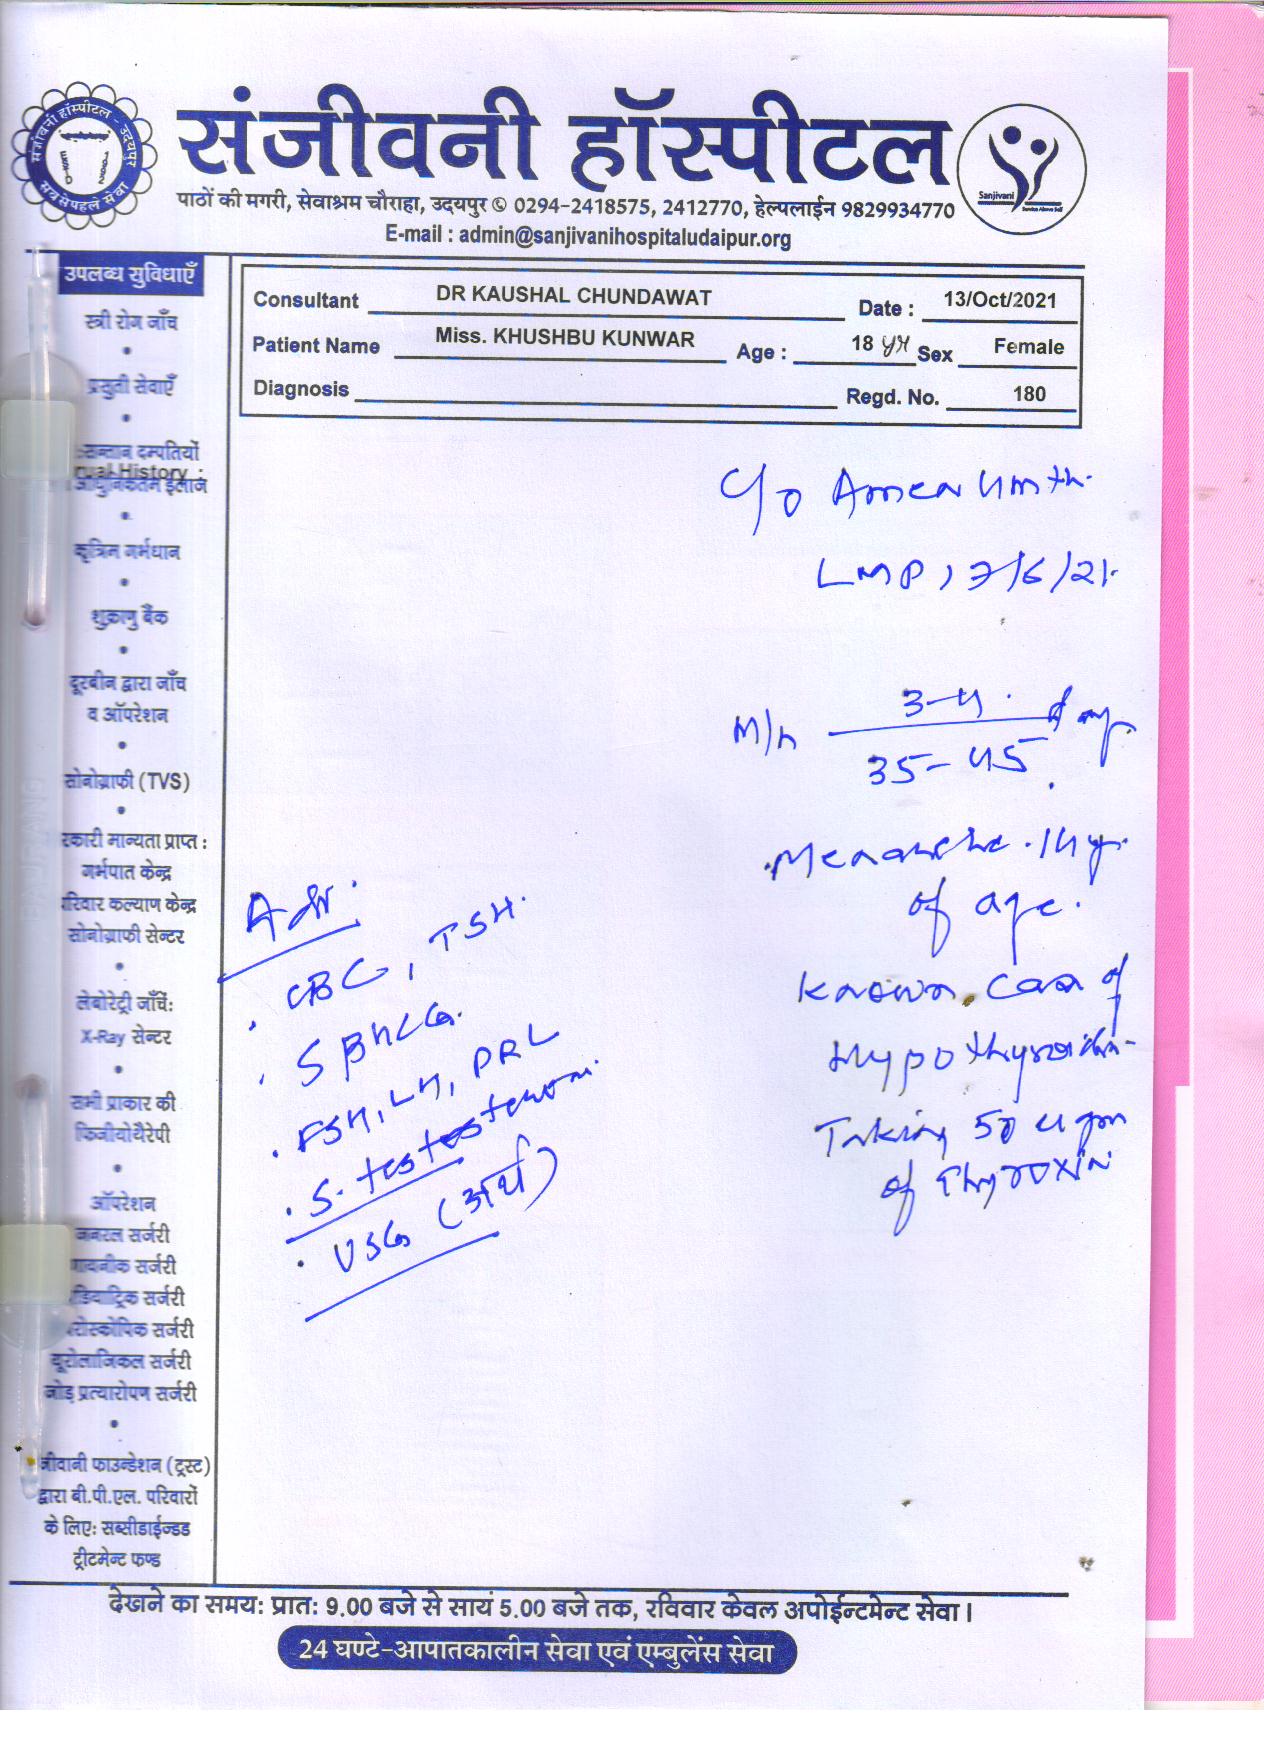 संजीवनी हॉस्पीटल - उदयपुर
सबसे पहले सेवा
संजीवनी हॉस्पीटल
Sanjivani
Service Above Self
पाठों की मगरी, सेवाश्रम चौराहा, उदयपुर 0294-2418575, 2412770, हेल्पलाईन 9829934770
E-mail : admin@sanjivanihospitaludaipur.org
Consultant DR KAUSHAL CHUNDAWAT Date : 13/Oct/2021
Patient Name Miss. KHUSHBU KUNWAR Age : 18 yr Sex Female
Diagnosis Regd. No. 180
उपलब्ध सुविधाएँ
स्त्री रोग जाँच
प्रसुती सेवाएँ
सन्तान दम्पतियों
rual History :
आधुनिकतम ईलाज
कृत्रिम गर्भधान
शुक्राणु बैंक
दूरबीन द्वारा जाँच
व ऑपरेशन
सोनोग्राफी (TVS)
रकारी मान्यता प्राप्त :
गर्भपात केन्द्र
रिवार कल्याण केन्द्र
सोनोग्राफी सेन्टर
लेबोरेट्री जाँचें:
X-Ray सेन्टर
सभी प्राकार की
फिजीयोथैरेपी
ऑपरेशन
जनरल सर्जरी
ायनीक सर्जरी
डियाट्रिक सर्जरी
रोस्कोपिक सर्जरी
यूरोलाजिकल सर्जरी
जोड़ प्रत्यारोपण सर्जरी
जीवानी फाउन्डेशन (ट्रस्ट)
द्वारा बी.पी.एल. परिवारों
के लिए: सब्सीडाईज्डड
ट्रीटमेन्ट फण्ड
C/o Amen 4 mth.
LMP, 7/6/21.
M/h 3-4 days
35-45
Menarche. 14 yr.
of age.
Known case of
Hypothyroidism
Taking 50 ugm
of Thyroxin
Adv.
CBC, TSH.
S BHCG.
FSH, LH, PRL
S. testosteron
USG (अर्थ)
देखने का समय: प्रातः 9.00 बजे से सायं 5.00 बजे तक, रविवार केवल अपोईन्टमेन्ट सेवा।
24 घण्टे-आपातकालीन सेवा एवं एम्बुलेंस सेवा